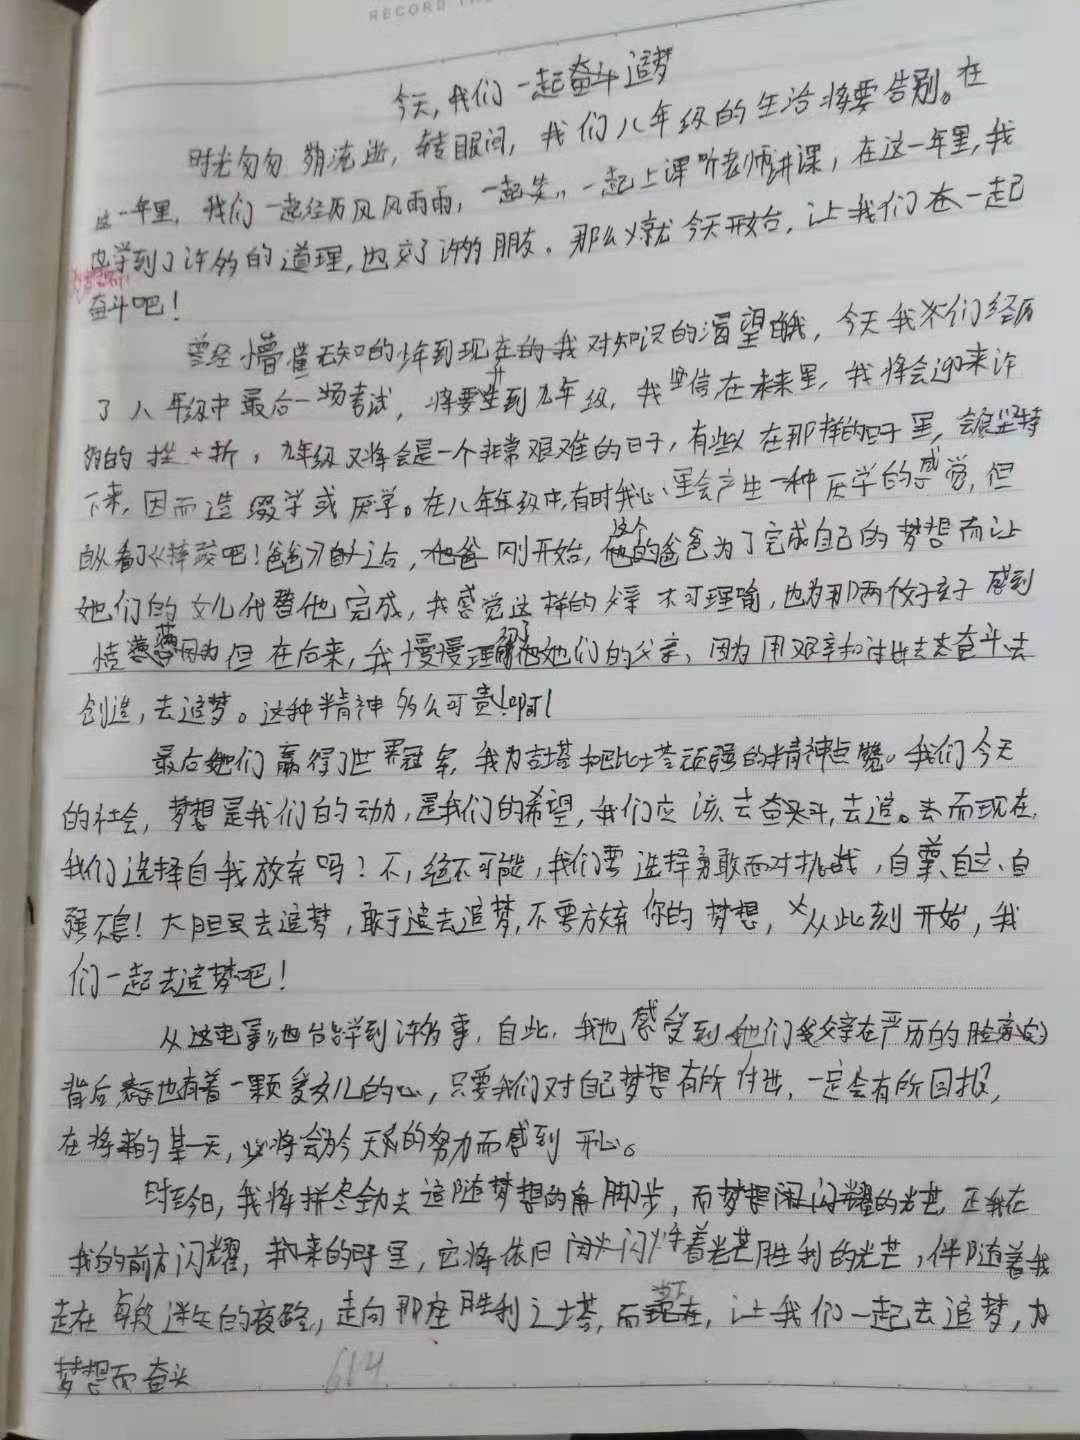 RECORD THE
今天,我们一起奋斗追梦
时光匆匆 流逝,转眼间,我们八年级的生活将要告别。在
这一年里,我们一起经历风风雨雨,一起笑,一起上课听老师讲课,在这一年里,我
也学到了许多的道理,也交了许多朋友。那么就今天开始,让我们在一起
奋斗吧!
曾经懵懂无知的少年到现在的我对知识的渴望的我,今天我们经历
了八年级中最后一场考试,将要升到九年级,我坚信在未来里,我将会迎来许
多的挫折,九年级又将会是一个非常艰难的日子,有些人在那样的日子里,会很坚持
下来,因而造辍学或厌学。在八年年级中,有时我心里会产生一种厌学的感觉,但
自从看了《摔跤吧!爸爸》之后,刚开始,这个爸爸为了完成自己的梦想而让
她们的女儿代替他完成,我感觉这样的父亲不可理喻,也为那两个女孩子感到
但在后来,我慢慢理解了她们的父亲,因为用艰辛和付出去奋斗去
创造,去追梦。这种精神多么可贵啊!
最后她们赢得了世界冠军,我为吉塔和巴比塔顽强的精神点赞。我们今天
的社会,梦想是我们的动力,是我们的希望,我们应该去奋斗,去追。去而现在,
我们选择自我放弃吗?不,绝不可能,我们要选择勇敢面对挑战,自尊、自立、自
强不息!大胆去追梦,敢于去追梦,不要放弃你的梦想,从此刻开始,我
们一起去追梦吧!
从这电影也学到许多事,自此,我也感受到她们父亲在严历的脸
背后,也有着一颗爱女儿的心,只要我们对自己梦想有所付出,一定会有所回报,
在将来的某一天,将会为今天的努力而感到开心。
时至今日,我将拼尽全力去追随梦想的脚步,而梦想闪耀的光芒,正在
我的前方闪耀,未来的日子里,它将依旧闪烁着光芒胜利的光芒,伴随着我
走在每段迷失的夜路,走向那座胜利之塔,而当下,让我们一起去追梦,为
梦想而奋斗
614